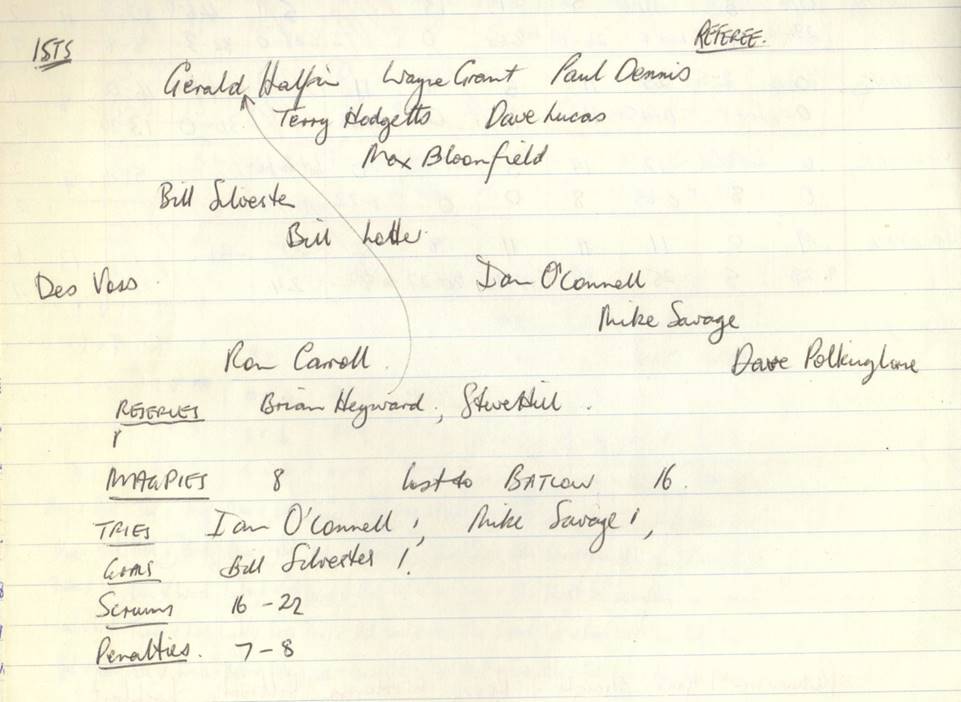 1STS
REFEREE.
Gerald Halpin Wayne Grant Paul Dennis
Terry Hodgetts Dave Lucas
Max Bloomfield
Bill Silvester
Bill Lotter
Des Voss
Ian O'Connell
Mike Savage
Ron Carroll
Dave Polkinghorne
RESERVES Brian Heyward, Steve Hill.
MAGPIES 8 lost to BATLOW 16.
TRIES Ian O'Connell 1, Mike Savage 1,
GOALS Bill Silvester 1.
Scrums 16-22
Penalties. 7-8